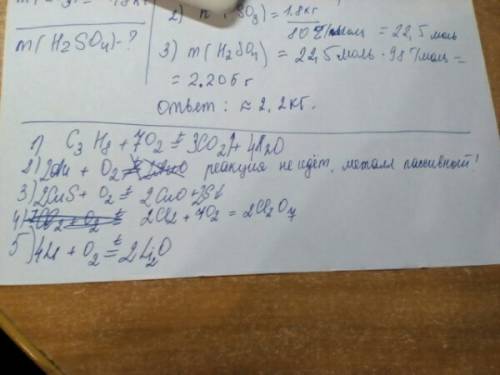 2) n (SO3) = 1.8кг / 80 г/моль = 22,5 моль
m(H2SO4)-?
3) m(H2SO4) = 22,5 моль · 98 г/моль =
= 2.205г
ответ: ≈ 2,2кг.
1) C3H8 + 7O2 t= 3CO2↑ + 4H2O
2) 2Au + O2 реакция не идёт, металл пассивный!
3) 2CuS + O2 t= 2CuO + 2S↓
4) 2Cl2 + 7O2 = 2Cl2O7
5) 4Li + O2 t= 2Li2O